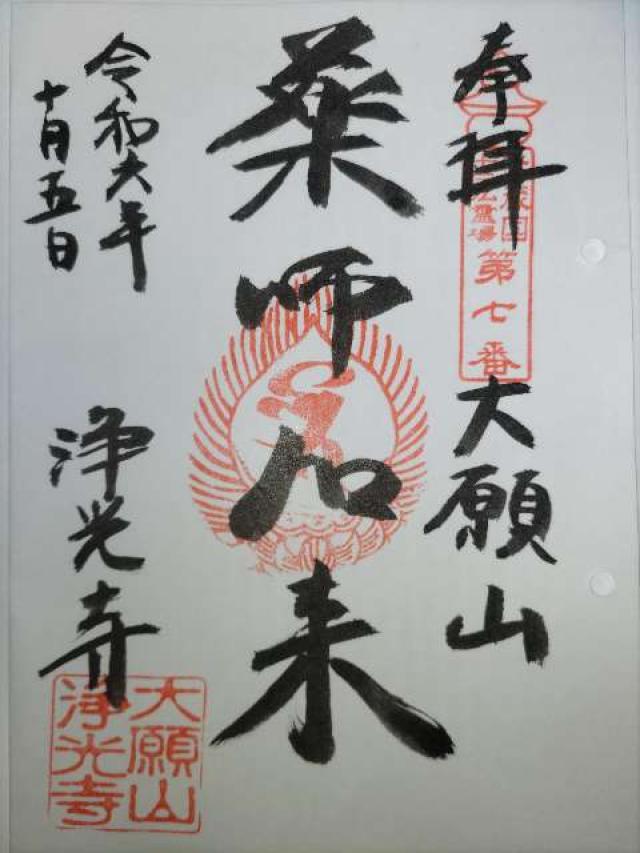 奉拝
大願山
第七番
薬師如来
令和六年
十月五日
浄光寺
大願山
浄光寺